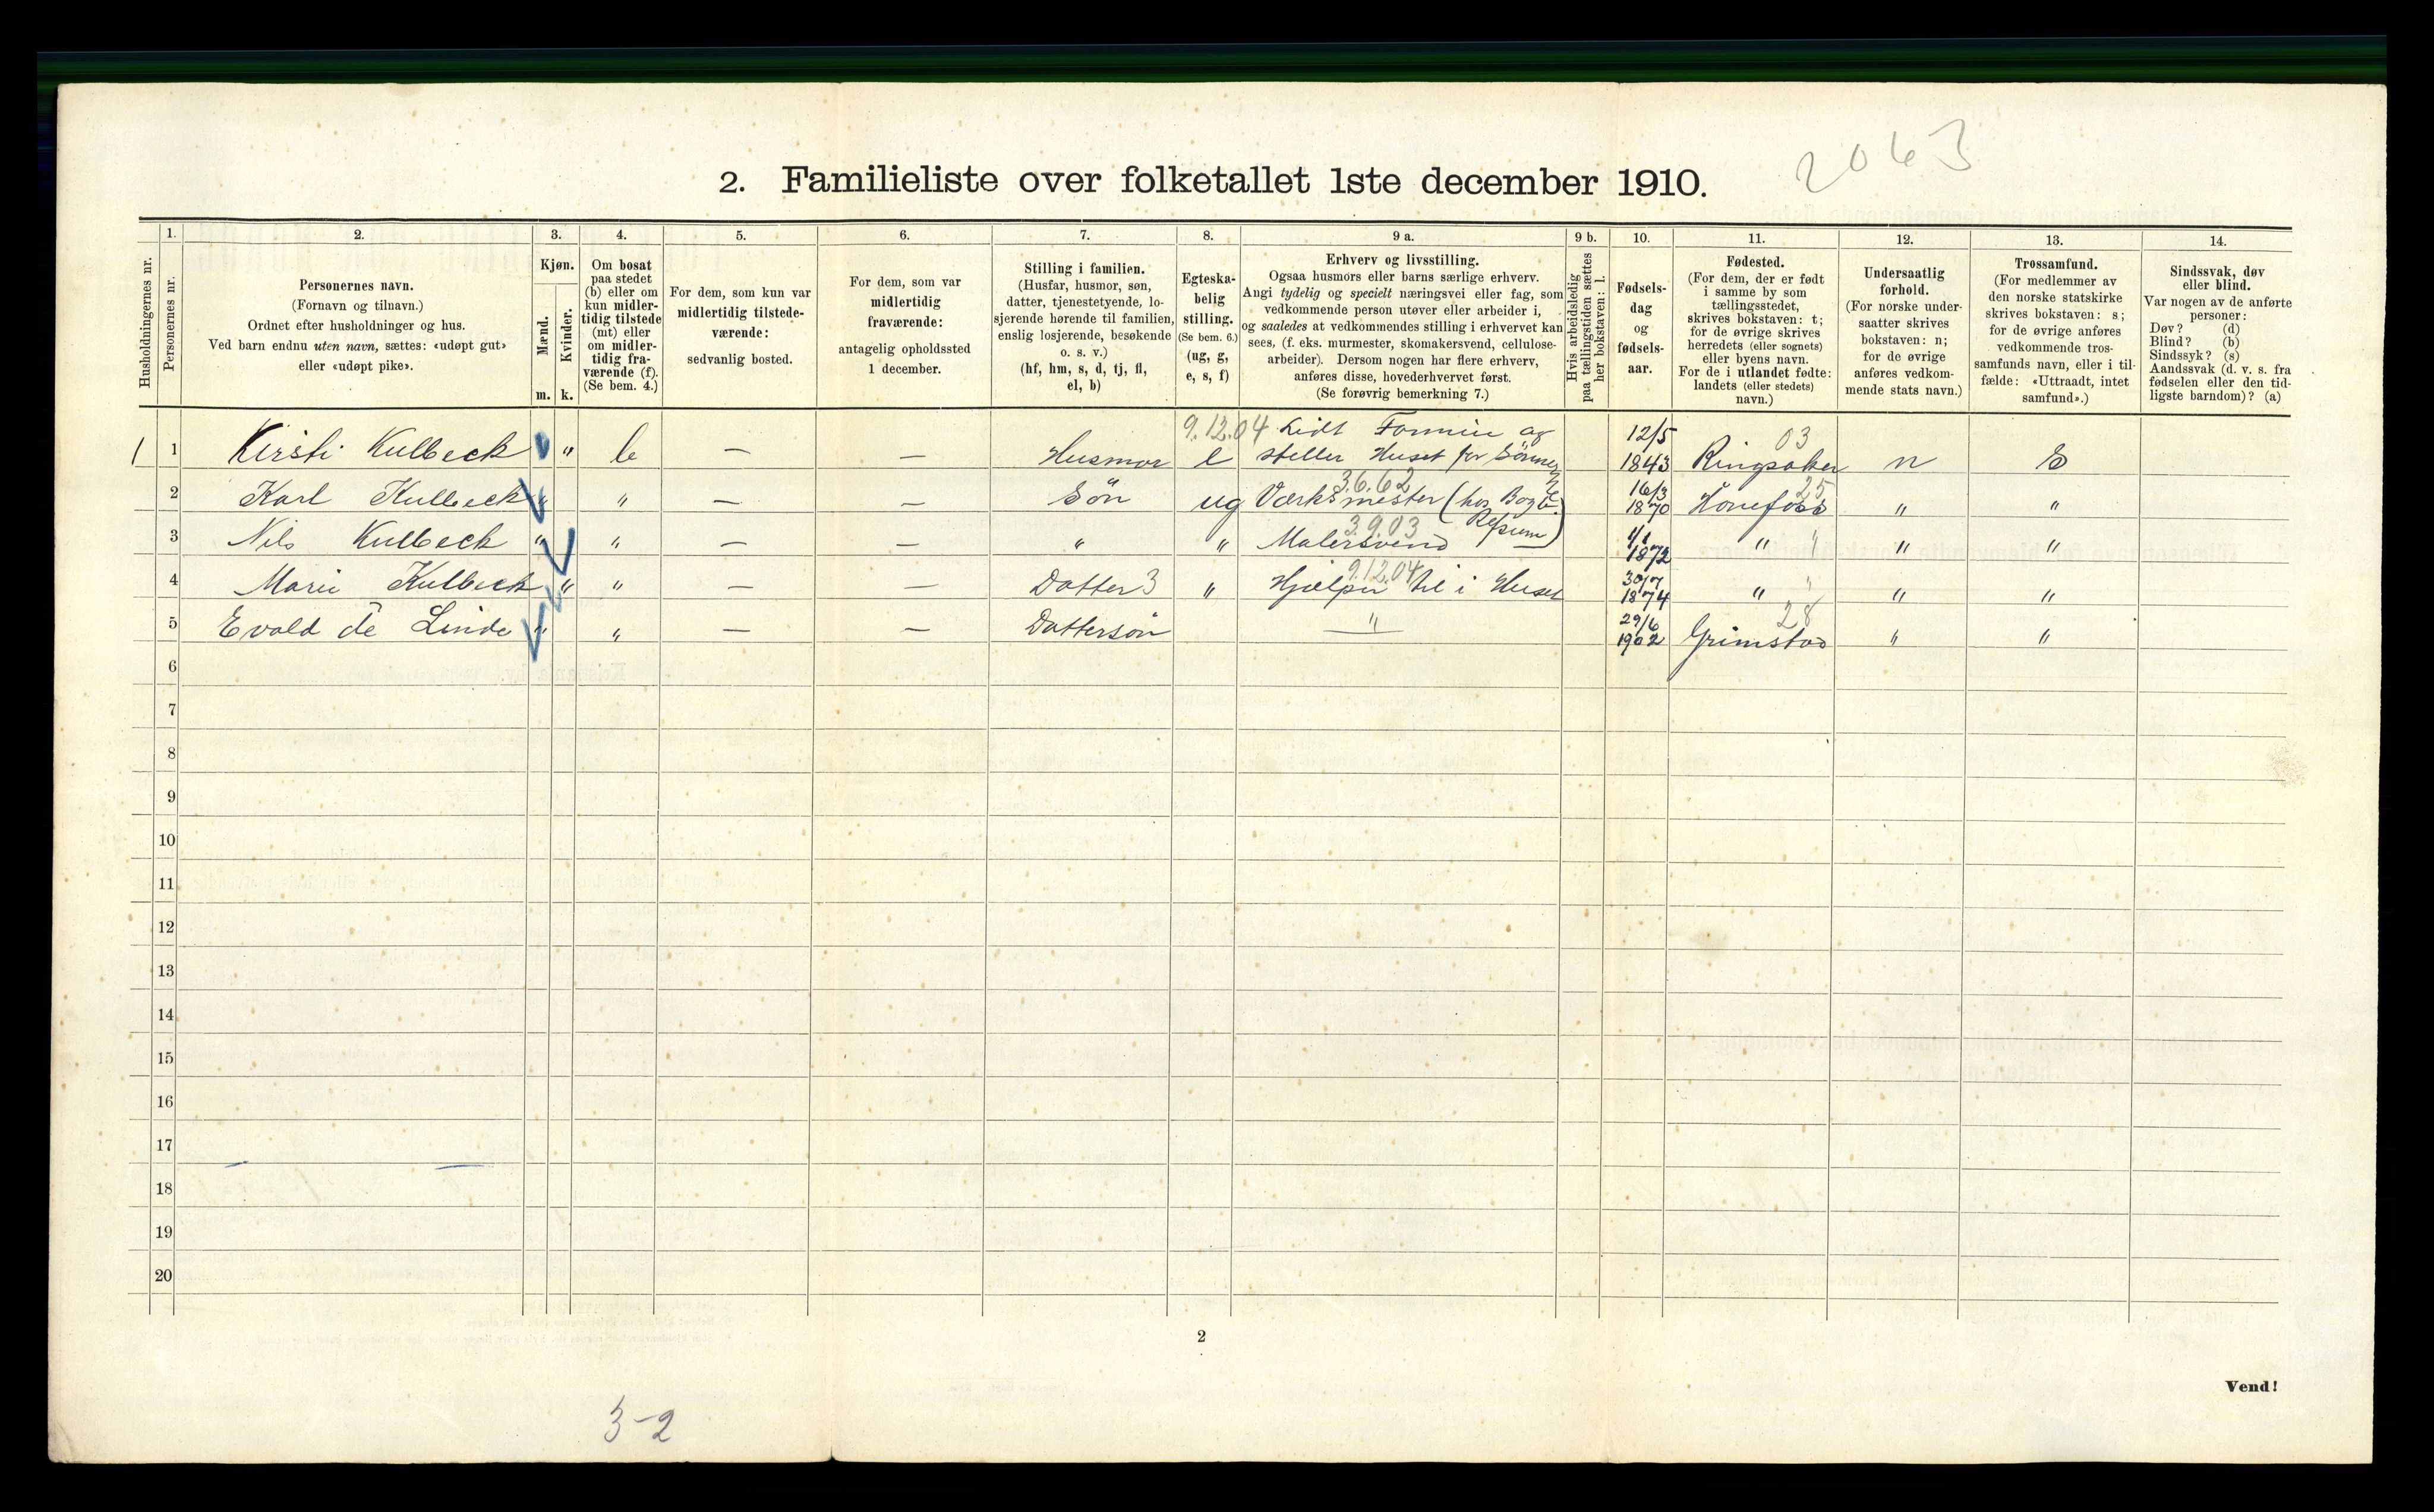 2063
2. Familieliste over folketallet 1ste december 1910.
Husholdningernes nr.
1.
Personernes nr.
2.
Personernes navn.
(Fornavn og tilnavn.)
Ordnet efter husholdninger og hus.
Ved barn endnu uten navn, sættes: «udøpt gut»
eller «udøpt pike».
3.
Kjøn.
Mænd.
m.
Kvinder.
k.
4.
Om bosat
paa stedet
(b) eller om
kun midler-
tidig tilstede
(mt) eller
om midler-
tidig fra-
værende (f).
(Se bem. 4.)
5.
For dem, som kun var
midlertidig tilstede-
værende:
sedvanlig bosted.
6.
For dem, som var
midlertidig
fraværende:
antagelig opholdssted
1 december.
7.
Stilling i familien.
(Husfar, husmor, søn,
datter, tjenestetyende, lo-
sjerende hørende til familien,
enslig losjerende, besøkende
o. s. v.)
(hf, hm, s, d, tj, fl,
el, b)
8.
Egteska-
belig
stilling.
(Se bem. 6.)
(ug, g,
e, s, f)
9 a.
Erhverv og livsstilling.
Ogsaa husmors eller barns særlige erhverv.
Angi tydelig og specielt næringsvei eller fag, som
vedkommende person utøver eller arbeider i,
og saaledes at vedkommendes stilling i erhvervet kan
sees, (f. eks. murmester, skomakersvend, cellulose-
arbeider). Dersom nogen har flere erhverv,
anføres disse, hovederhvervet først.
(Se forøvrig bemerkning 7.)
9 b.
Hvis arbeidsledig
paa tællingstiden sættes
her bokstaven: l.
10.
Fødsels-
dag
og
fødsels-
aar.
11.
Fødested.
(For dem, der er født
i samme by som
tællingsstedet,
skrives bokstaven: t;
for de øvrige skrives
herredets (eller sognets)
eller byens navn.
For de i utlandet fødte:
landets (eller stedets)
navn.)
12.
Undersaatlig
forhold.
(For norske under-
saatter skrives
bokstaven: n;
for de øvrige
anføres vedkom-
mende stats navn.)
13.
Trossamfund.
(For medlemmer av
den norske statskirke
skrives bokstaven: s;
for de øvrige anføres
vedkommende tros-
samfunds navn, eller i til-
fælde: «Uttraadt, intet
samfund».)
14.
Sindssvak, døv
eller blind.
Var nogen av de anførte
personer:
Døv? (d)
Blind? (b)
Sindssyk? (s)
Aandssvak (d. v. s. fra
fødselen eller den tid-
ligste barndom)? (a)
9.12.04 Lidt Formue og 12/5 03
1 1 Kirsti Kulbeck " b — — Husmor e steller Huset for Sønner 1843 Ringsaker n S
3.6.62 16/3 25
2 Karl Kulbeck " " — — Søn ug Værksmester (hos 1870 Hønefoss " "
3.9.03 1/1
3 Nils Kulbeck " " — — " " Malersvend 1872 " " "
9.12.04 30/7
4 Marie Kulbeck " " — — Datter 3 " Hjelper til i Huset 1874 " " "
29/6 28
5 Evald de Linde " " — — Dattersøn " 1902 Grimstad " "
6
7
8
9
10
11
12
13
14
15
16
17
18
19
20
2
Vend!
3-2